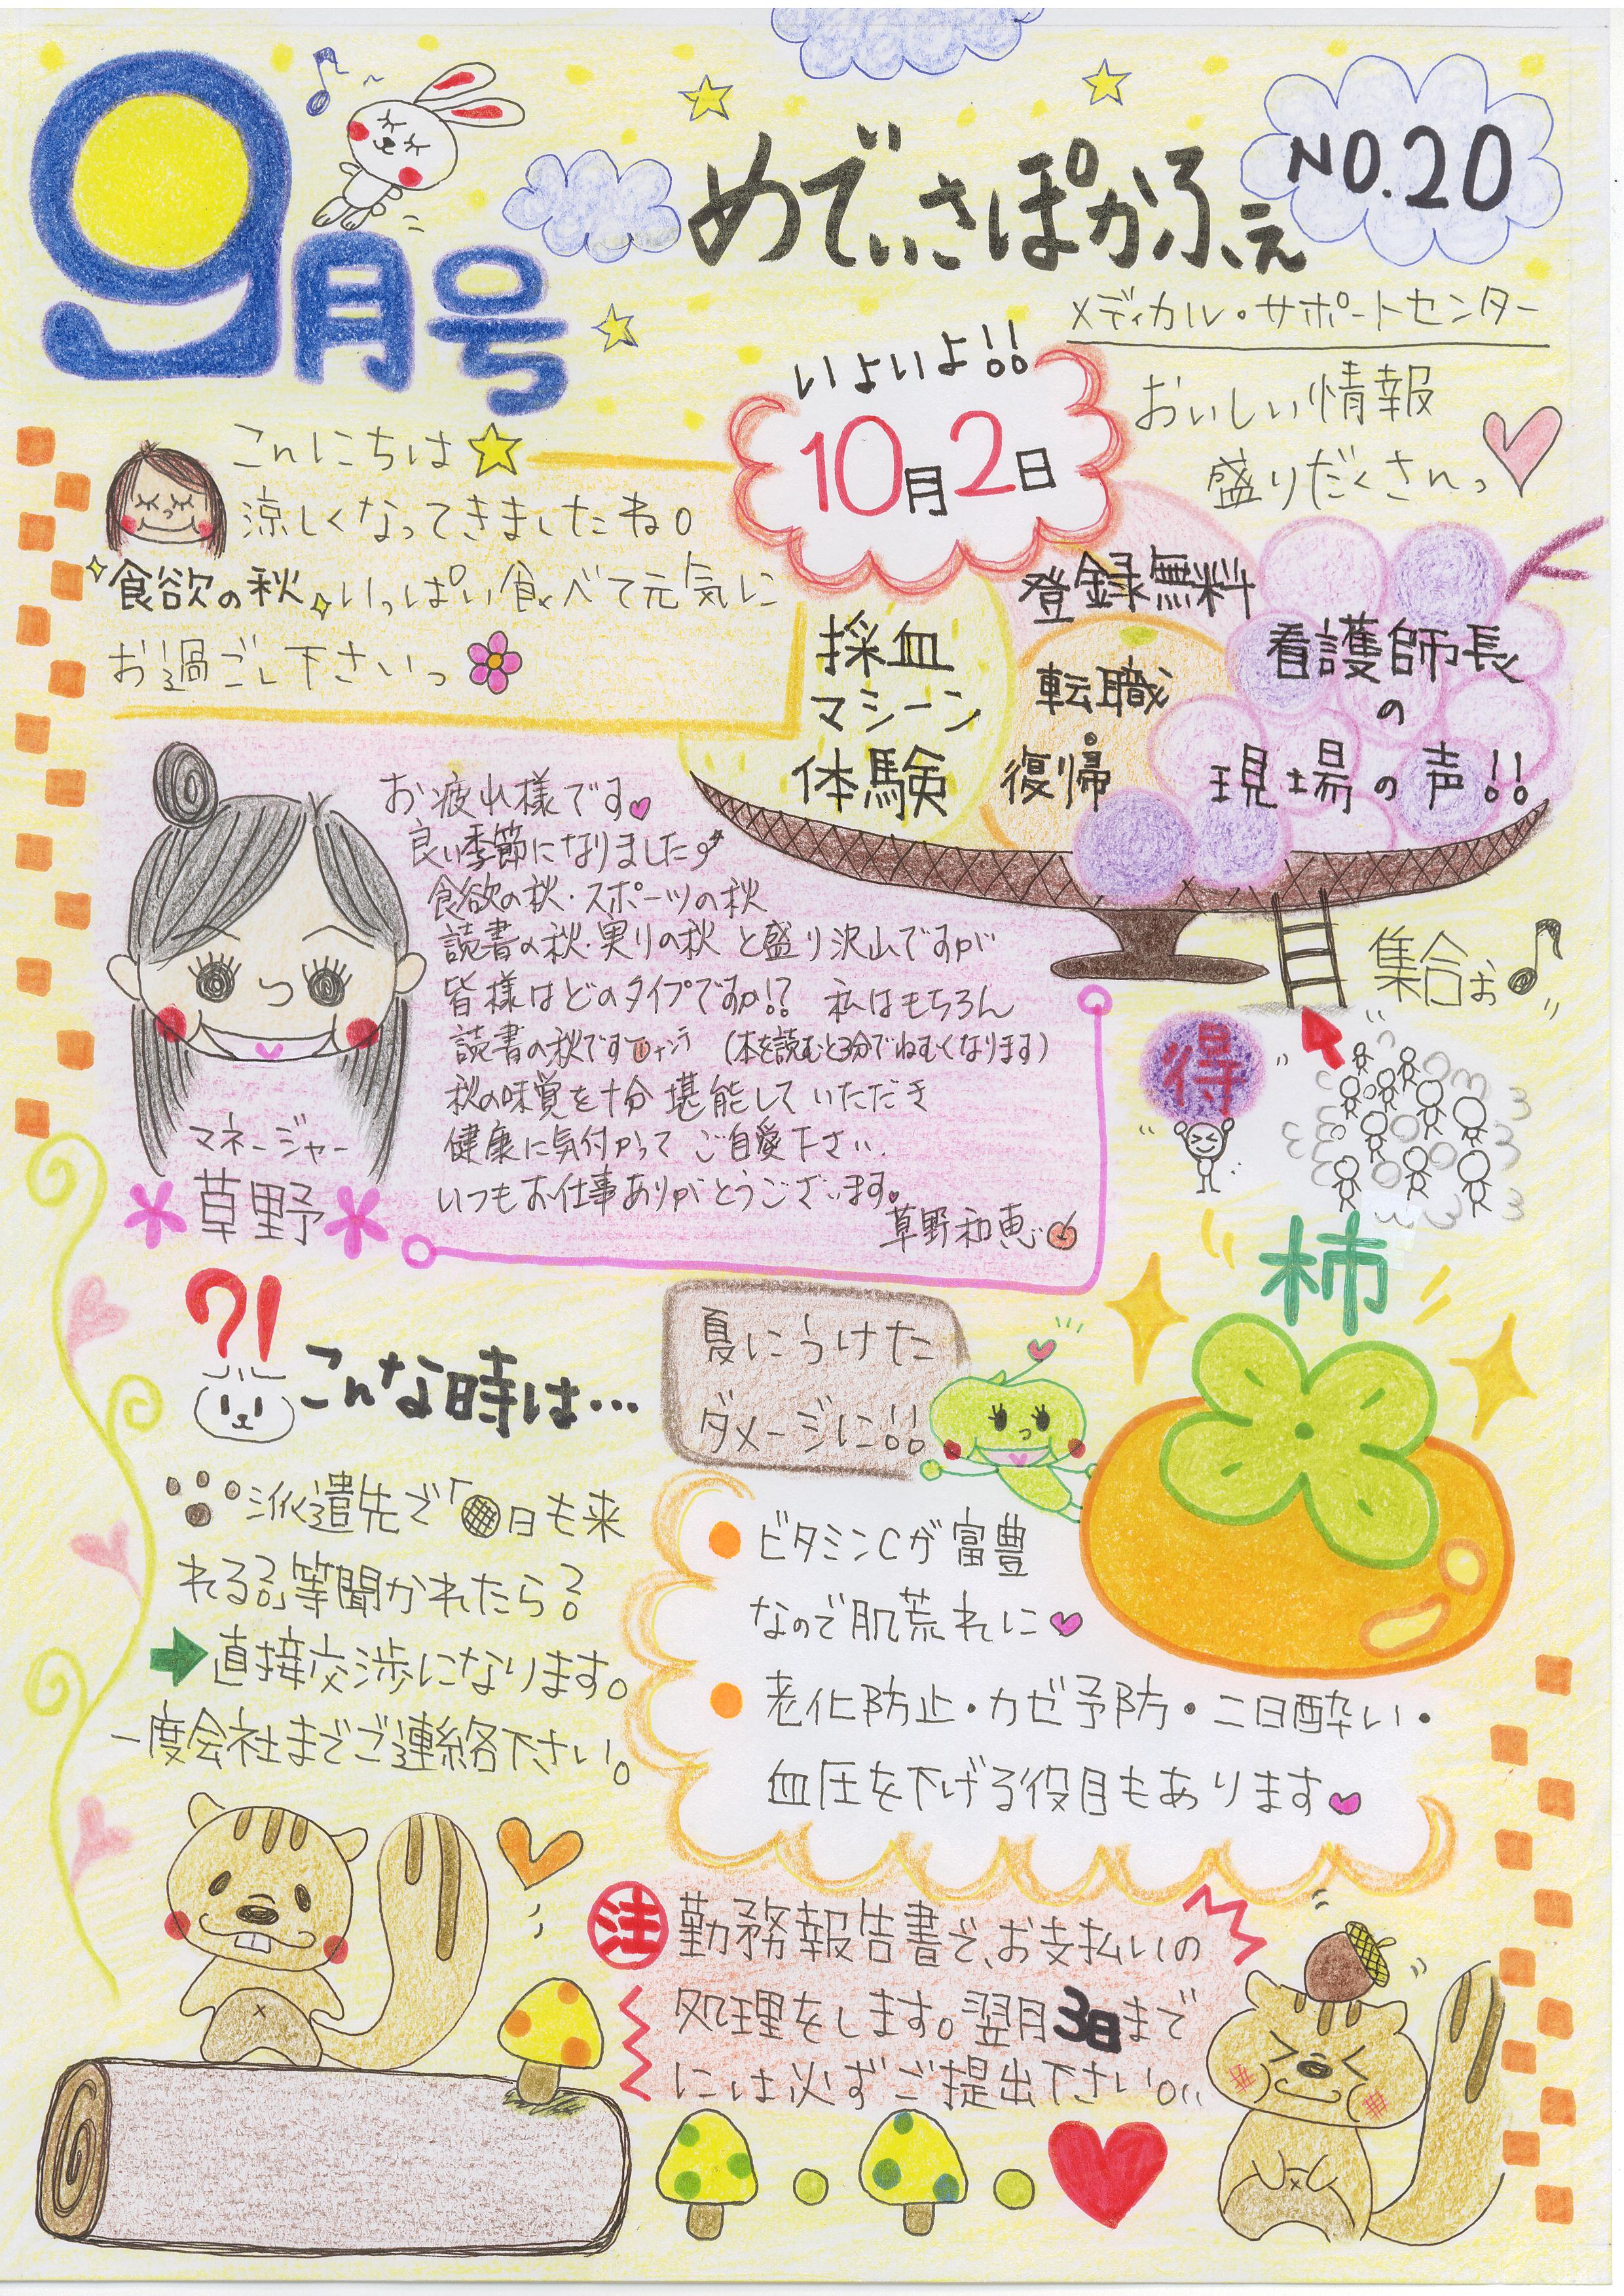 9月号
めでぃさぽかふぇ
NO.20
メディカル・サポートセンター
いよいよ!!
10月2日
おいしい情報
盛りだくさんっ
こんにちは
涼しくなってきましたね。
食欲の秋いっぱい食べて元気に
お過ごし下さいっ
採血
マシーン
体験
登録無料
転職
復帰
看護師長
の
現場の声!!
集合ぉ
得
お疲れ様です
良い季節になりました
食欲の秋・スポーツの秋
読書の秋・実りの秋 と盛り沢山ですが
皆様はどのタイプですか!? 私はもちろん
読書の秋です (本を読むと3分でねむくなります)
秋の味覚を十分堪能していただき
健康に気付かって ご自愛下さい.
いつもお仕事ありがとうございます。
草野和恵
マネージャー
草野
?!
こんな時は…
派遣先で「日も来
れる?」等聞かれたら?
直接交渉になります。
一度会社までご連絡下さい。
柿
夏にうけた
ダメージに!!
ビタミンCが富豊
なので肌荒れに
老化防止・カゼ予防・二日酔い・
血圧を下げる役目もあります
注 勤務報告書で、お支払いの
処理をします。翌月3日まで
には必ずご提出下さい。